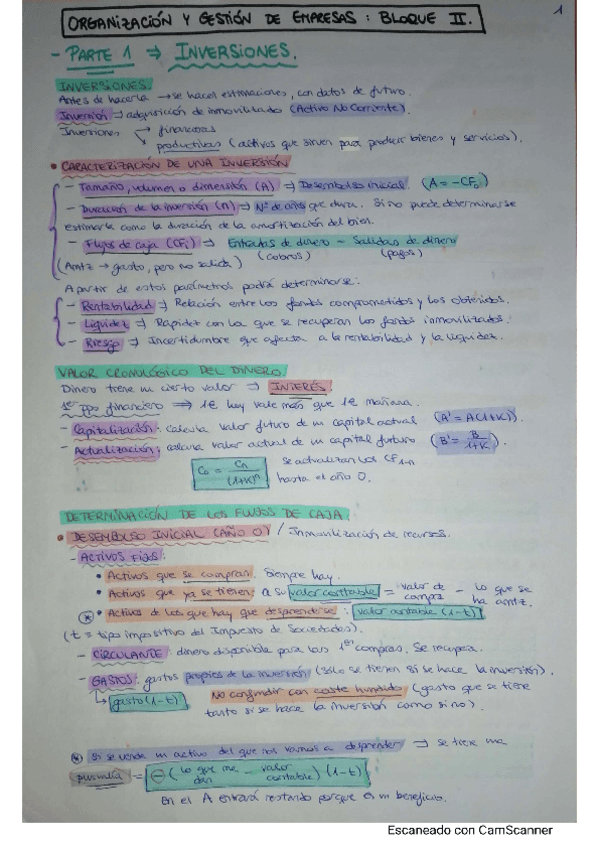 1
ORGANIZACIÓN Y GESTIÓN DE EMPRESAS: BLOQUE II.
- PARTE 1 ⇒ INVERSIONES.
INVERSIONES.
Antes de hacerla → se hacen estimaciones, con datos de futuro.
Inversión ⇒ adquisición de inmovilizado (Activo No Corriente).
Inversiones → financieras
→ productivas (activos que sirven para producir bienes y servicios).
• CARACTERIZACIÓN DE UNA INVERSIÓN
- Tamaño, volumen o dimensión (A) ⇒ Desembolso inicial. (A = -CF₀)
- Duración de la inversión (n) ⇒ Nº de años que dura. Si no puede determinarse
estimarla como la duración de la amortización del bien.
- Flujos de caja (CFi) ⇒ Entradas de dinero - Salidas de dinero
(Amtz → gasto, pero no salida) (cobros) (pagos)
A partir de estos parámetros podrá determinarse:
- Rentabilidad ⇒ Relación entre los fondos comprometidos y los obtenidos.
- Liquidez ⇒ Rapidez con la que se recuperan los fondos inmovilizados.
- Riesgo ⇒ Incertidumbre que afecta a la rentabilidad y la liquidez.
VALOR CRONOLÓGICO DEL DINERO.
Dinero tiene un cierto valor ⇒ INTERÉS.
1er ppo financiero ⇒ 1€ hoy vale más que 1€ mañana.
- Capitalización: calcula valor futuro de un capital actual (A' = A(1+K)).
- Actualización: calcula valor actual de un capital futuro (B' = B/1+K).
C₀ = Cn/(1+K)ⁿ Se actualizan los CF 1-n
hasta el año 0.
DETERMINACIÓN DE LOS FLUJOS DE CAJA
• DESEMBOLSO INICIAL (AÑO 0) / Inmovilización de recursos.
- ACTIVOS FIJOS:
• Activos que se compran. Siempre hay.
• Activos que ya se tienen: a su valor contable = valor de compra - lo que se ha amtz.
* • Activos de los que hay que desprenderse: valor contable (1-t)
(t = tipo impositivo del Impuesto de Sociedades).
- CIRCULANTE: dinero disponible para las 1er compras. Se recupera.
- GASTOS: gastos propios de la inversión (sólo se tienen si se hace la inversión).
↳ gasto (1-t). No confundir con coste hundido (gasto que se tiene
tanto si se hace la inversión como si no).
* Si se vende un activo del que nos vamos a desprender ⇒ se tiene una
plusvalía = - (lo que me dan - valor contable) (1-t)
En el A entrará restando porque es un beneficio.
Escaneado con CamScanner